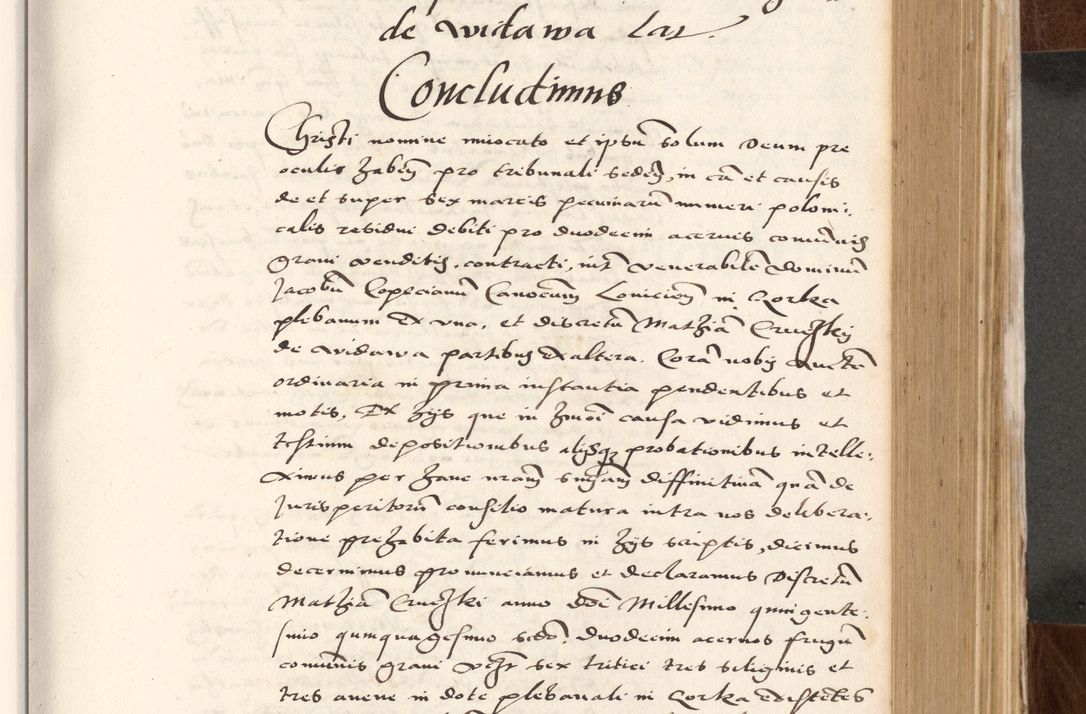 de Widawa Lat.
Concludimus
Christi nomine inuocato et ipsū solum Deum pre
oculis habeñ pro tribunali sedeñ, in cā et causis
de et super sex marcis pecuniarū numeri poloni-
calis residui debiti pro duodecim aceruis comūnis
grani venditis, contracti, int̄ venerabilē dominū
Jacobū Copecianū Canocum̄ Loniciem̄ in Gorka
plebanum Ex vna, et discretū Mathiā Cruchski
de Widawa partibus Ex altera. Corā nobis Auctē
ordinaria in prima instantia pendentibus et
motis, Ex hijs que in hmōi causa vidimus et
testium depositionibus alijsqz probationibus intelle-
ximus per hanc nrām snīam diffinitiuā quā de
Jurisperitorū consilio matura intra nos delibera-
tione prehabita ferimus in hijs scriptis, dicimus
decernimus pronunciamus et declaramus Discretū
Mathiā Cruchski anno dnī Millesimo quingente-
simo quinquagesimo scdō, duodecim aceruos frugū
comunis grani vcht sex tritici tres siliginis et
tres auene in dote plebanali in Gorka existētes